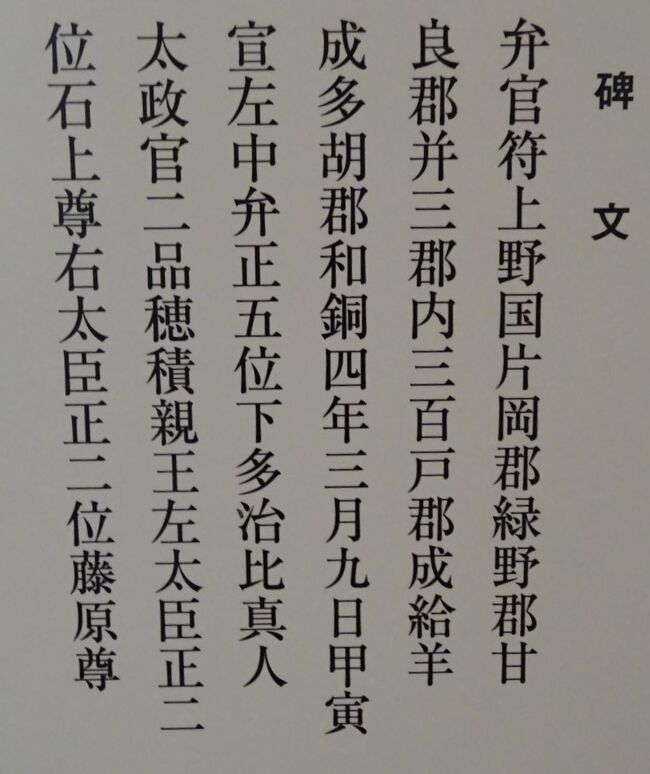 碑文
弁官符上野国片岡郡緑野郡甘
良郡并三郡内三百戸郡成給羊
成多胡郡和銅四年三月九日甲寅
宣左中弁正五位下多治比真人
太政官二品穂積親王左太臣正二
位石上尊右太臣正二位藤原尊